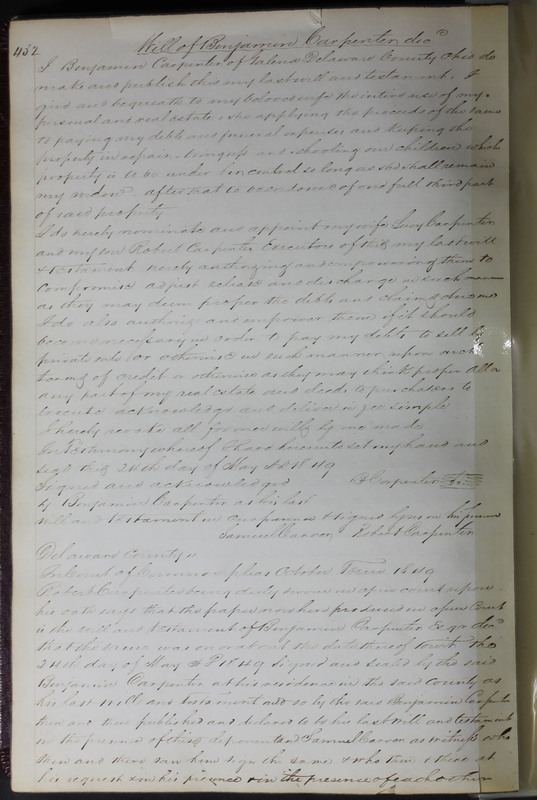 432
Will of Benjamin Carpenter decd
I Benjamin Carpenter of Galena Delaware County Ohio do
make and publish this my last will and testament. I
give and bequeath to my beloved wife the entire use of my
personal and real estate, she applying the proceeds of the same
to paying my debts and funeral expenses and keeping the
property in repair, bringing up and schooling our children which
property is to be under her control so long as she shall remain
my widow after that to be endowed of one full third part
of said property
I do hereby nominate and appoint my wife Carpenter
and my son Robert Carpenter Executors of this my last will
& testament hereby authorizing and empowering them to
compromise adjust release and discharge in such manner
as they may deem proper the debts and claims due me
I do also authorize and empower them if it should
become necessary in order to pay my debts to sell by
private sale or otherwise in such manner upon such
terms of credit or otherwise as they may think proper all or
any part of my real estate and deeds to purchasers to
execute acknowledge and deliver in fee simple
I hereby revoke all former wills by me made
In Testimony whereof I have hereunto set my hand and
seal this 24th day of May AD 1849
Signed and acknowledged B Carpenter
by Benjamin Carpenter as his last
will and testament in our presence & signed by us in his presence
Samuel Robert Carpenter
Delaware County ss
In Court of Common pleas October Term 1849
Robert Carpenter being duly sworn in open court upon
his oath says that the paper now here produced in open Court
is the will and testament of Benjamin Carpenter decd
that the same was on or about the date thereof to wit the
24th day of May AD 1849 signed and sealed by the said
Benjamin Carpenter at his residence in the said County as
his last will and testament and so by the said Benjamin Carpenter
then and there published and declared to be his last will and testament
in the presence of this deponent and Samuel as witness who
then and there saw him sign the same & who then & there at
his request & in his presence & in the presence of each other